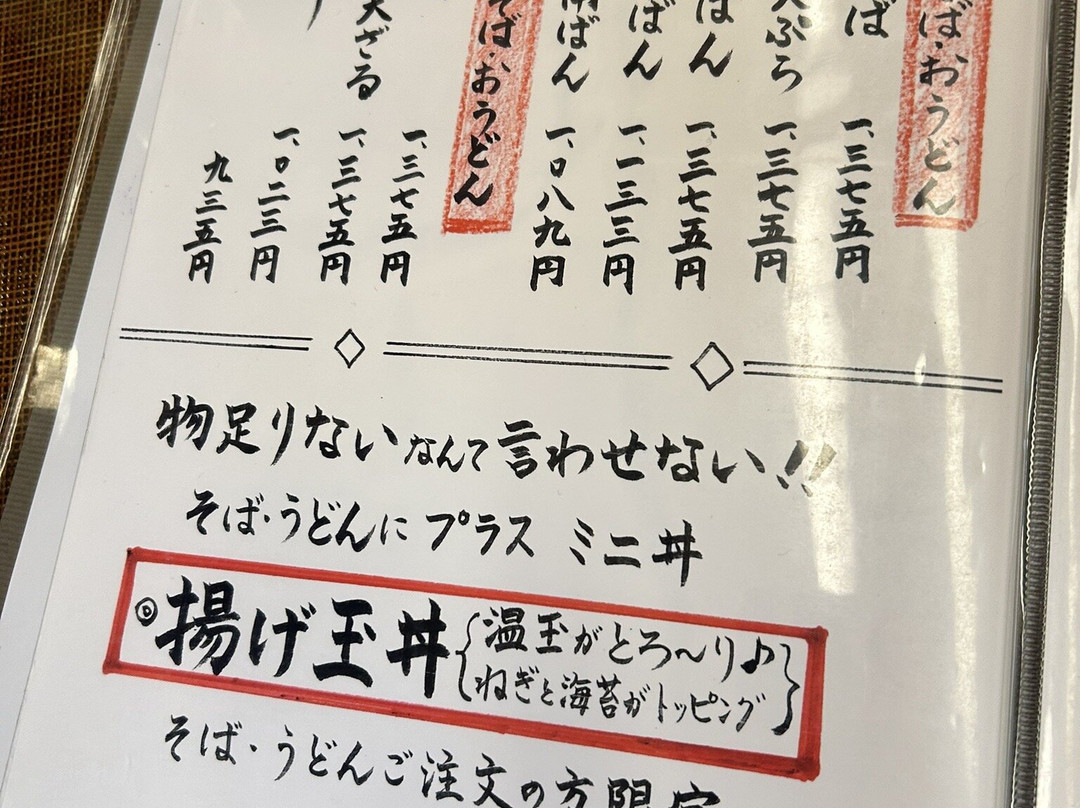 ば・おうどん
ば
一、三七五円
ぷら
一、三七五円
ばん
一、三七五円
ばん
一、一三三円
南ばん
一、〇八九円
そば・おうどん
一、三七五円
天ざる
一、三七五円
一、〇二三円
九三五円
物足りないなんて言わせない!!
そば・うどんに プラス ミニ丼
揚げ玉丼
温玉がとろ〜り♪
ねぎと海苔がトッピング
そば・うどんご注文の方限定